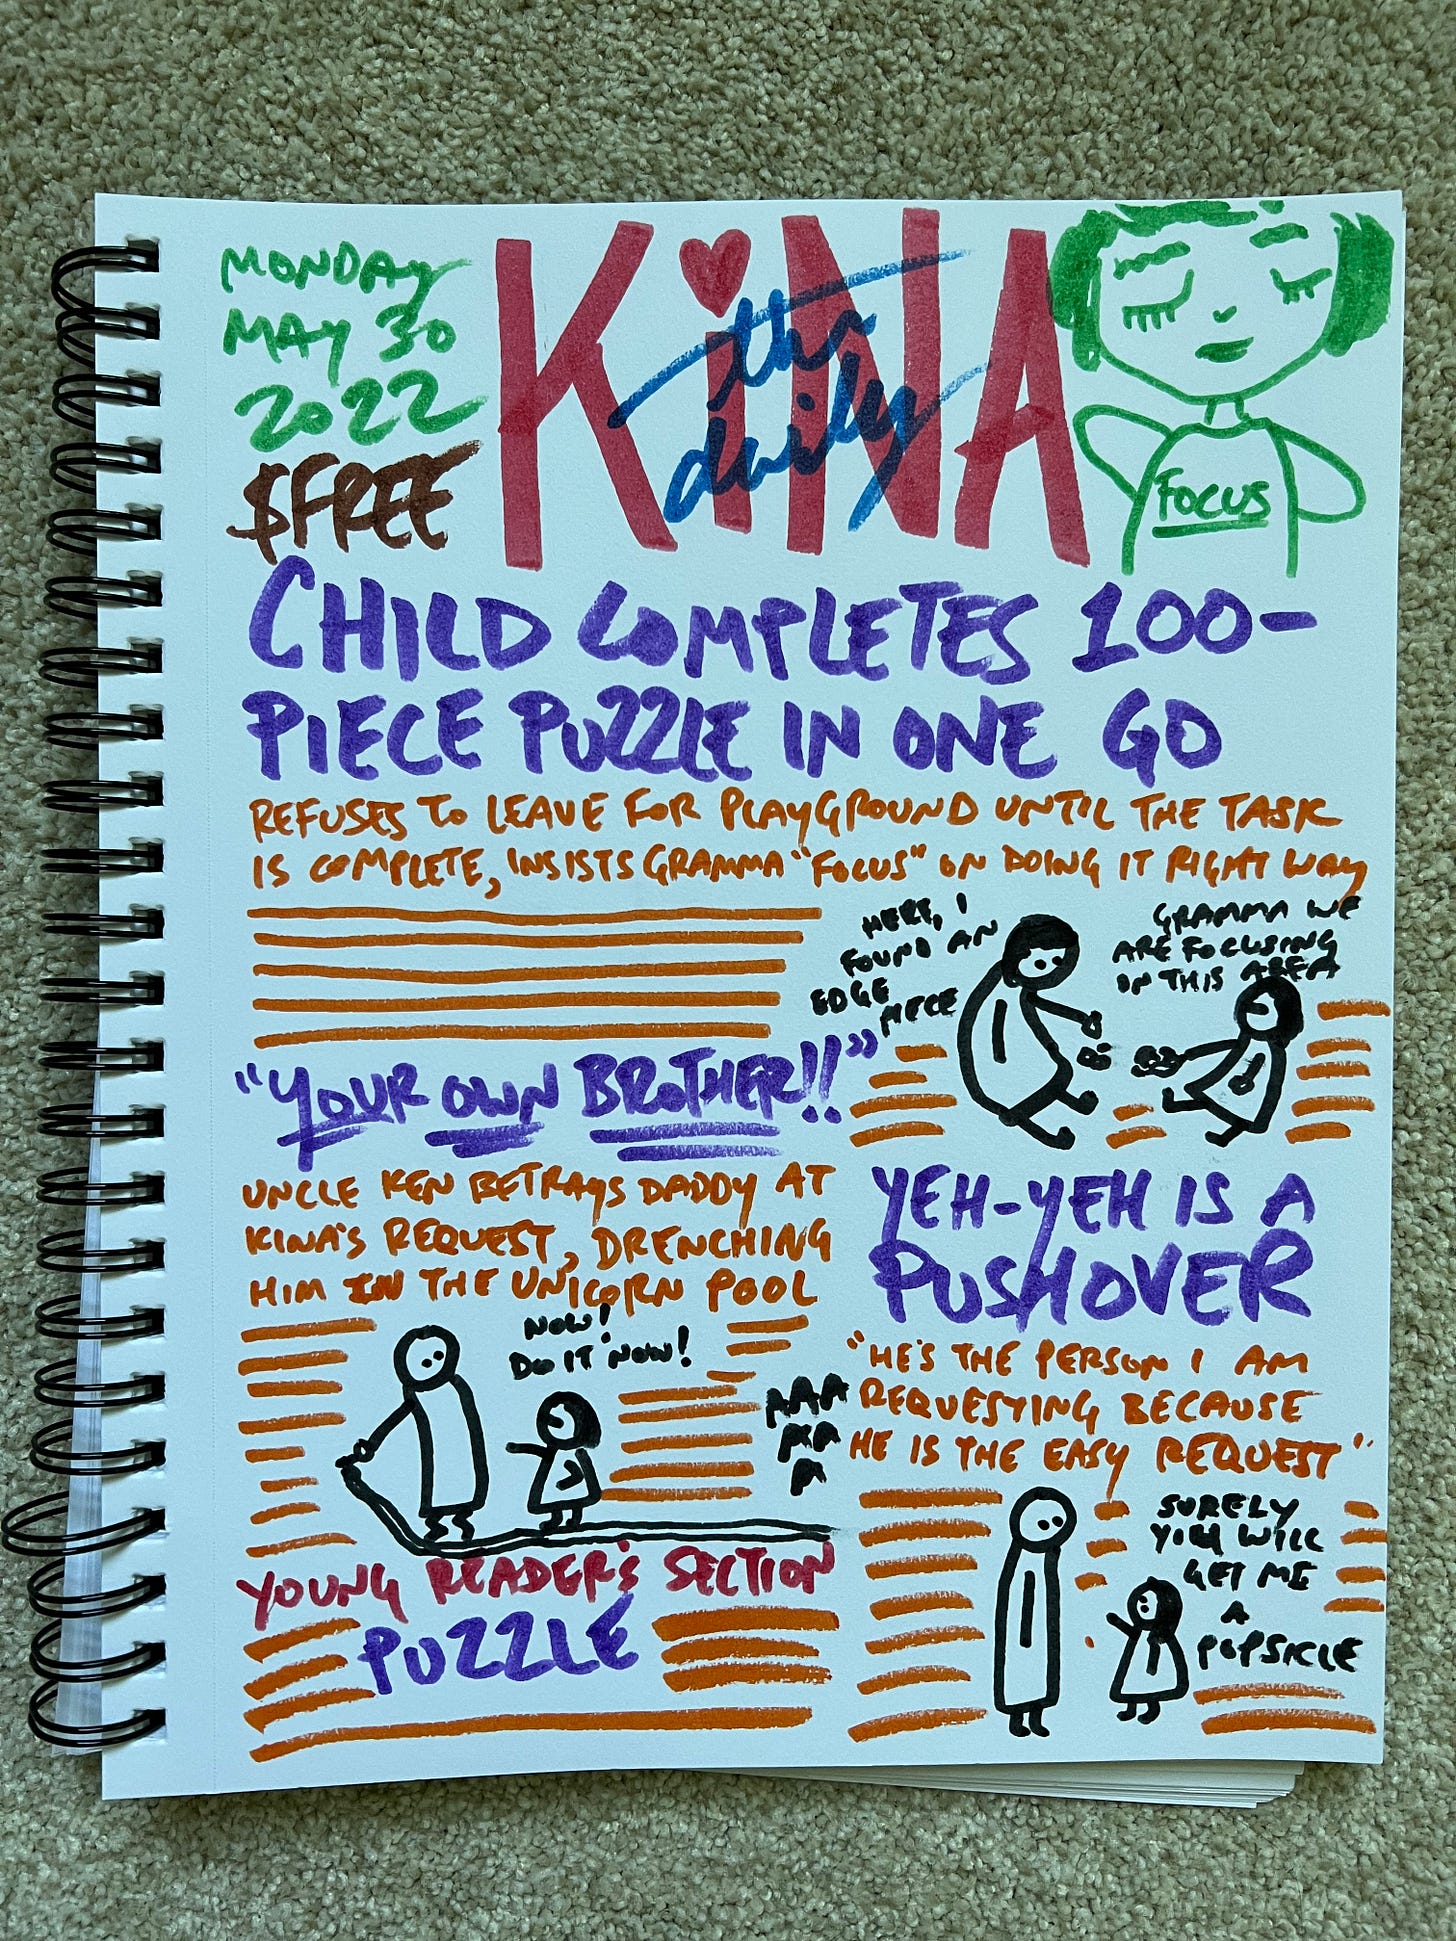 MONDAY
MAY 30
2022
$FREE
KiNA
the
daily
FOCUS
CHILD COMPLETES 100-
PIECE PUZZLE IN ONE GO
REFUSES TO LEAVE FOR PLAYGROUND UNTIL THE TASK
IS COMPLETE, INSISTS GRAMMA "FOCUS" ON DOING IT RIGHT WAY
HERE, I
FOUND AN
EDGE
PIECE
GRAMMA WE
ARE FOCUSING
IN THIS AREA
"YOUR OWN BROTHER!!"
UNCLE KEN BETRAYS DADDY AT
KINA'S REQUEST, DRENCHING
HIM IN THE UNICORN POOL
NOW!
DO IT NOW!
AAA
AA
A
YEH-YEH IS A
PUSHOVER
"HE'S THE PERSON I AM
REQUESTING BECAUSE
HE IS THE EASY REQUEST"
SURELY
YOU WILL
GET ME
A
POPSICLE
YOUNG READER'S SECTION
PUZZLE